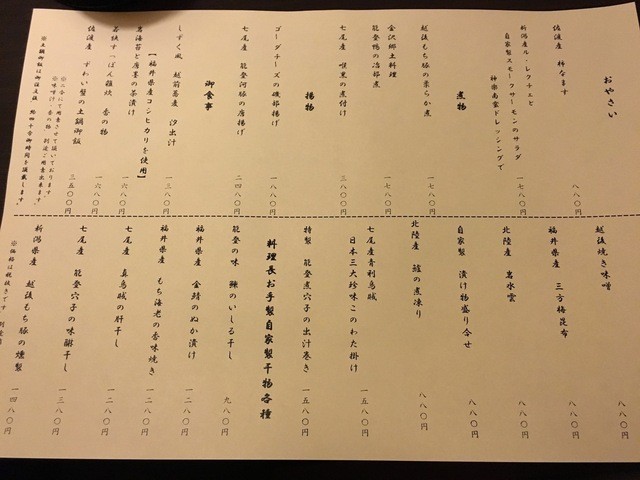 おやさい
佐渡産 柿なます
八八〇円
新潟産ル・レクチェと
自家製スモークサーモンのサラダ
神楽南蛮ドレッシングで
一七八〇円
煮物
越後もち豚の柔らか煮
一七八〇円
金沢郷土料理
能登鴨の治部煮
一七八〇円
七尾産 喉黒の煮付け
三八〇〇円
揚物
ゴーダチーズの磯部揚げ
一八八〇円
七尾産 能登河豚の唐揚げ
二四八〇円
御食事
しずく風 越前蕎麦 汐出汁
一三八〇円
【福井県産コシヒカリを使用】
岩海苔と唐墨の茶漬け
一六八〇円
若狭すっぽん雑炊 香の物
一六八〇円
佐渡産 ずわい蟹の土鍋御飯
三五〇〇円
※二合にて用意させて頂いております
※味噌汁・香の物 別途ご用意出来ます。
※土鍋御飯は御注文後 約四十分御時間を頂戴します。
越後焼き味噌
八八〇円
福井県産 三方梅昆布
八八〇円
北陸産 岩水雲
八八〇円
自家製 漬け物盛り合せ
八八〇円
北陸産 鱧の煮凍り
八八〇円
七尾産青利烏賊
日本三大珍味このわた掛け
一五八〇円
特製 能登煮穴子の出汁巻き
一五八〇円
料理長お手製自家製干物各種
能登の味 鰊のいしる干し
九八〇円
福井県産 金鯖のぬか漬け
一二八〇円
福井県産 もち海老の香味焼き
一二八〇円
七尾産 真烏賊の肝干し
一二八〇円
七尾産 能登穴子の味醂干し
一三八〇円
新潟県産 越後もち豚の燻製
一四八〇円
※価格は税抜きです